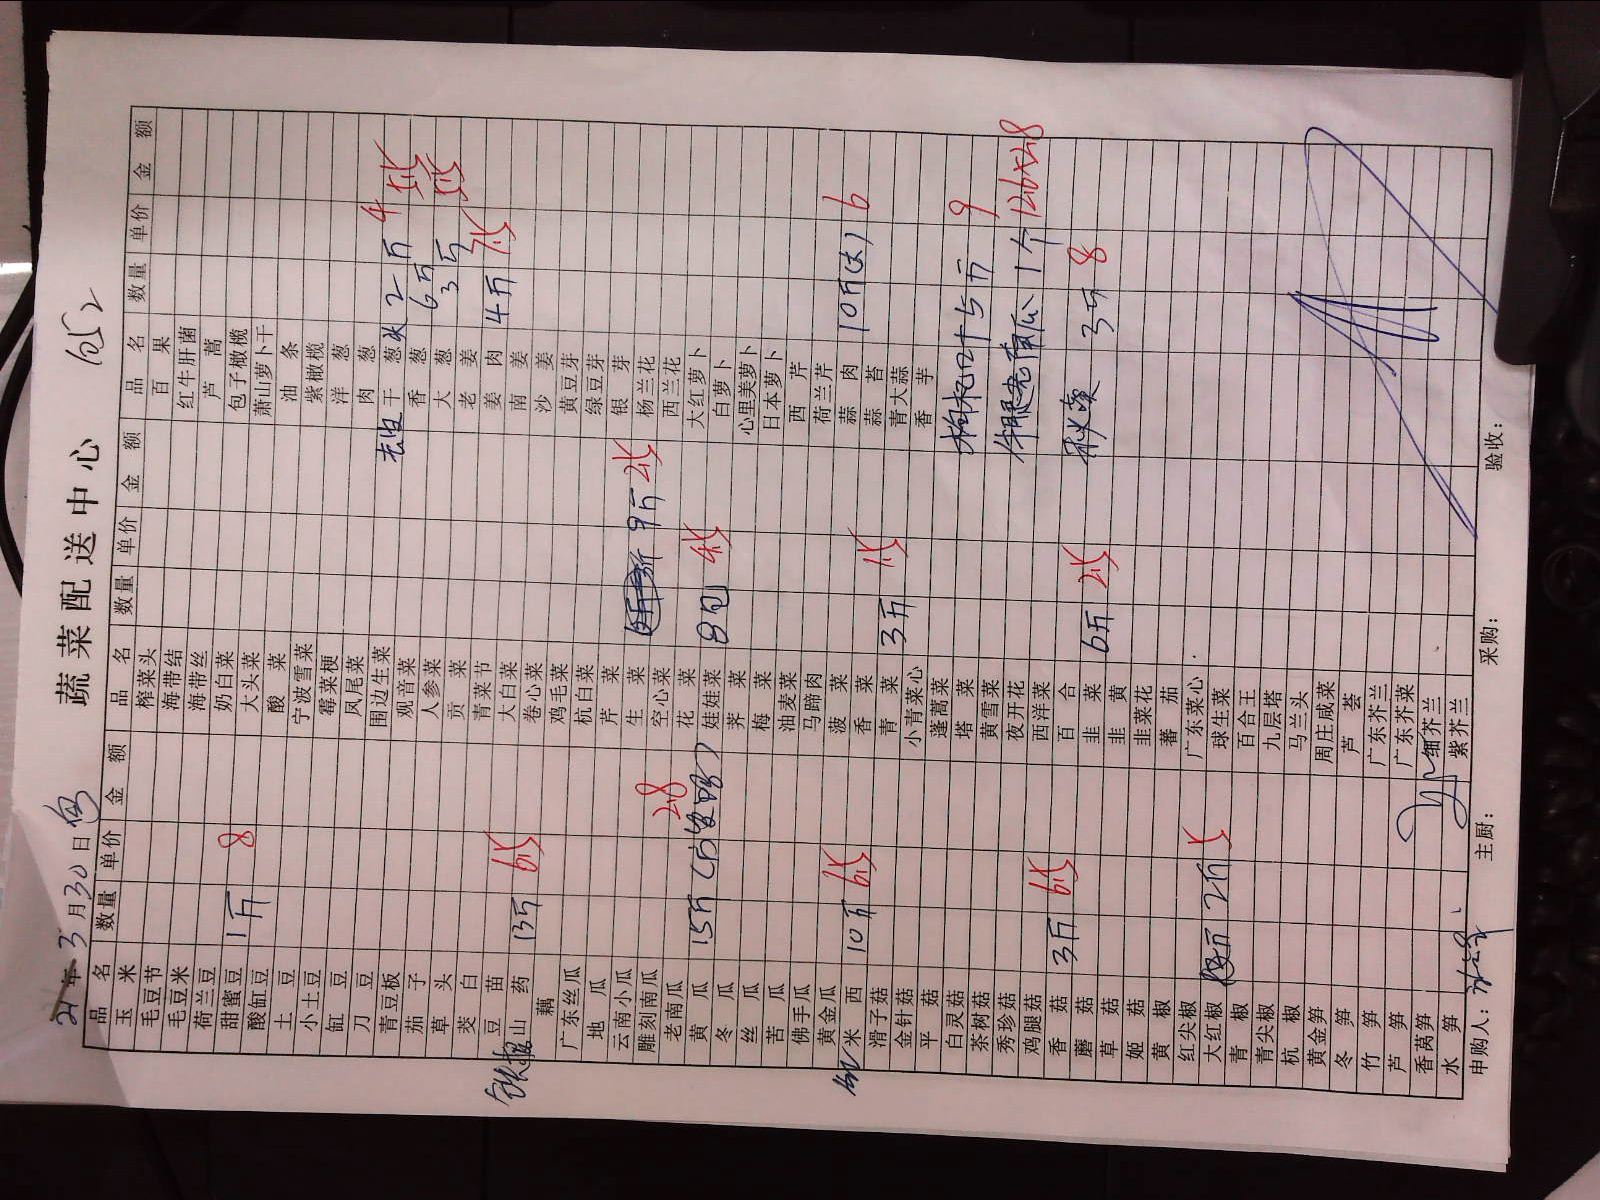 蔬菜配送中心
21年3月30日
品名 数量 单价 金额 品名 数量 单价 金额 品名 数量 单价 金额
玉米 榨菜头 百果
毛豆节 海带结 红牛肝菌
毛豆米 海带丝 芦蒿
荷兰豆 奶白菜 包子橄榄
甜蜜豆 1斤 8 大头菜 萧山萝卜干
酸缸豆 酸菜 油条
土豆 宁波雪菜 紫橄榄
小土豆 霉菜梗 洋葱
缸豆 凤尾菜 肉葱
刀豆 围边生菜 去皮干葱头 2斤 4
青豆板 观音菜 香葱 6斤 5.5
茄子 人参菜 大葱 3斤 5.5
草头 贡菜 老姜
茭白 青菜节 姜肉 4斤 7.5
豆苗 大白菜 南姜
铁棍山药 13斤 6.5 卷心菜 沙姜
藕 鸡毛菜 黄豆芽
广东丝瓜 杭白菜 绿豆芽
地瓜 芹菜 银芽
云南小瓜 生菜 9斤 2.5 杨兰花
雕刻南瓜 空心菜 西兰花
老南瓜 2.8 花菜 大红萝卜
黄瓜 15斤 娃娃菜 8包 4.5 白萝卜
冬瓜 荠菜 心里美萝卜
丝瓜 梅菜 日本萝卜
苦瓜 油麦菜 西芹
佛手瓜 马蹄肉 荷兰芹
黄金瓜 菠菜 蒜肉 10斤(大) 6
米西 10斤 6.5 香菜 蒜苔
滑子菇 青菜 3斤 1.5 青大蒜
金针菇 小青菜心 香芋
平菇 蓬蒿菜
白灵菇 塔菜 枇杷叶 5斤 9
茶树菇 黄雪菜
秀珍菇 夜开花 牛腿老南瓜 1个 12.6×2.8
鸡腿菇 西洋菜
香菇 3斤 6.5 百合
蘑菇 韭菜 6斤 2.5 秋葵 3斤 8
草菇 韭黄
姬菇 韭菜花
黄椒 蕃茄
红尖椒 广东菜心
大红椒 2斤 5 球生菜
青椒 百合王
青尖椒 九层塔
杭椒 马兰头
黄金笋 周庄咸菜
冬笋 芦荟
竹笋 广东芥兰
芦笋 广东芥菜
香莴笋 细芥兰
水笋 紫芥兰
申购人： 主厨： 采购： 验收：